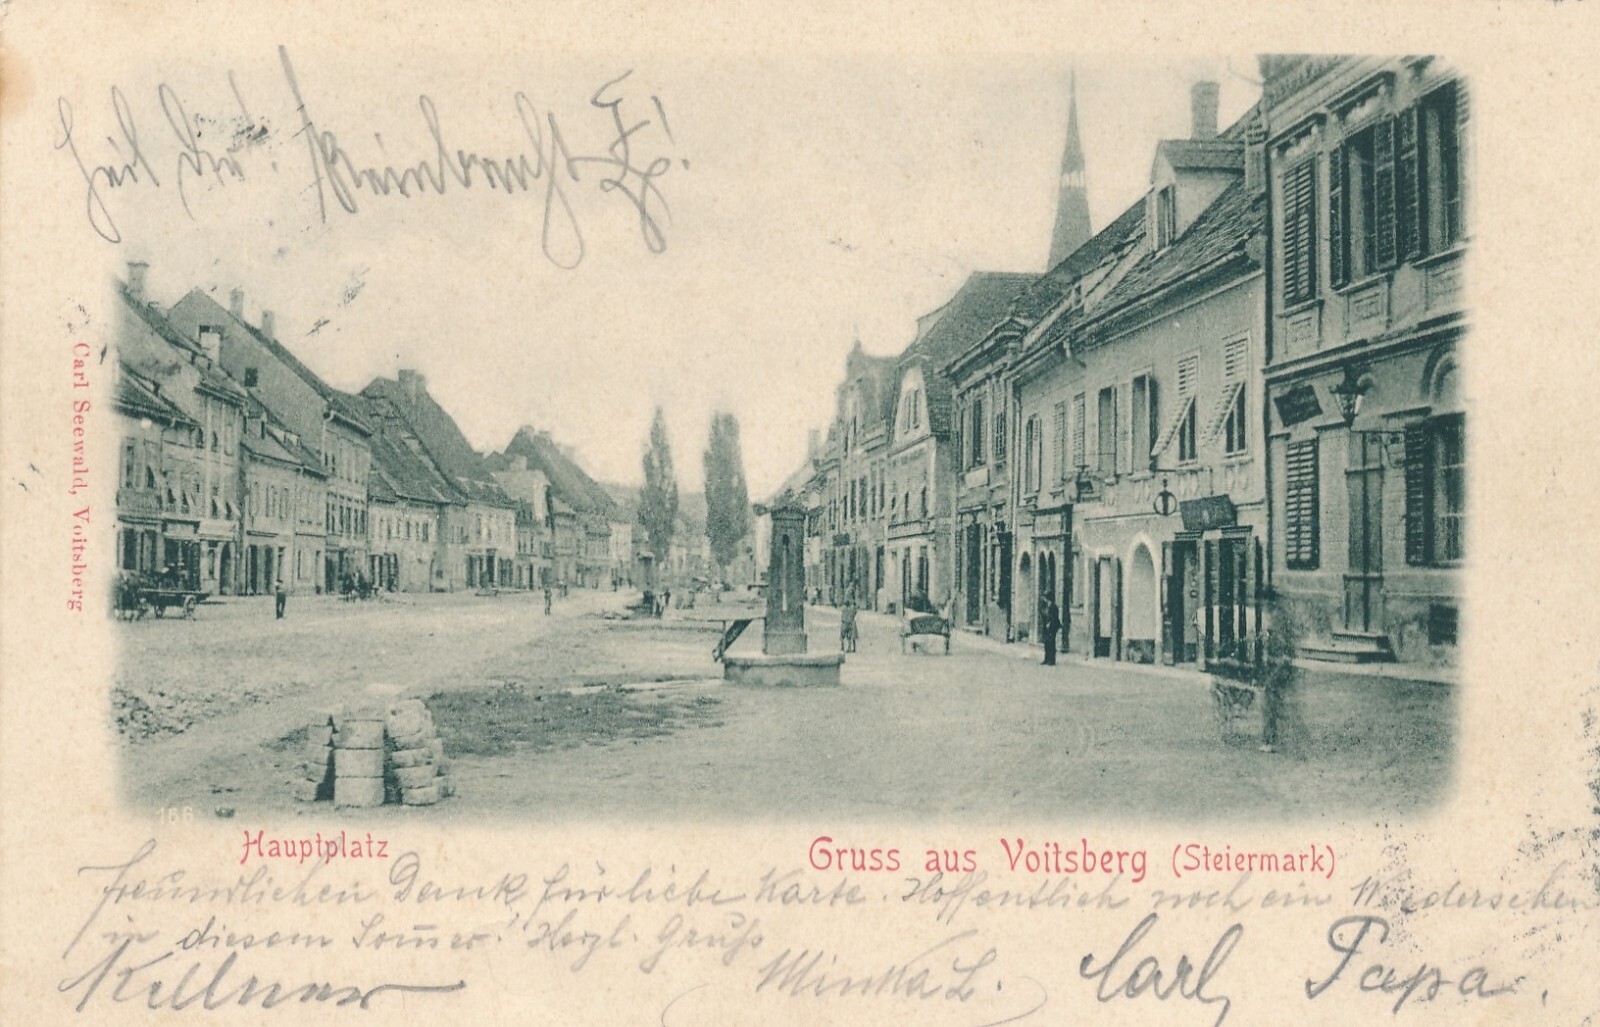 Heil Dir!
Carl Seewald, Voitsberg
166
Hauptplatz
Gruss aus Voitsberg (Steiermark)
freundlichen Dank für liebe Karte. Hoffentlich noch ein Wiedersehen
in diesem Sommer! Herzl. Gruß
Kellner Minka L. Carl, Papa.